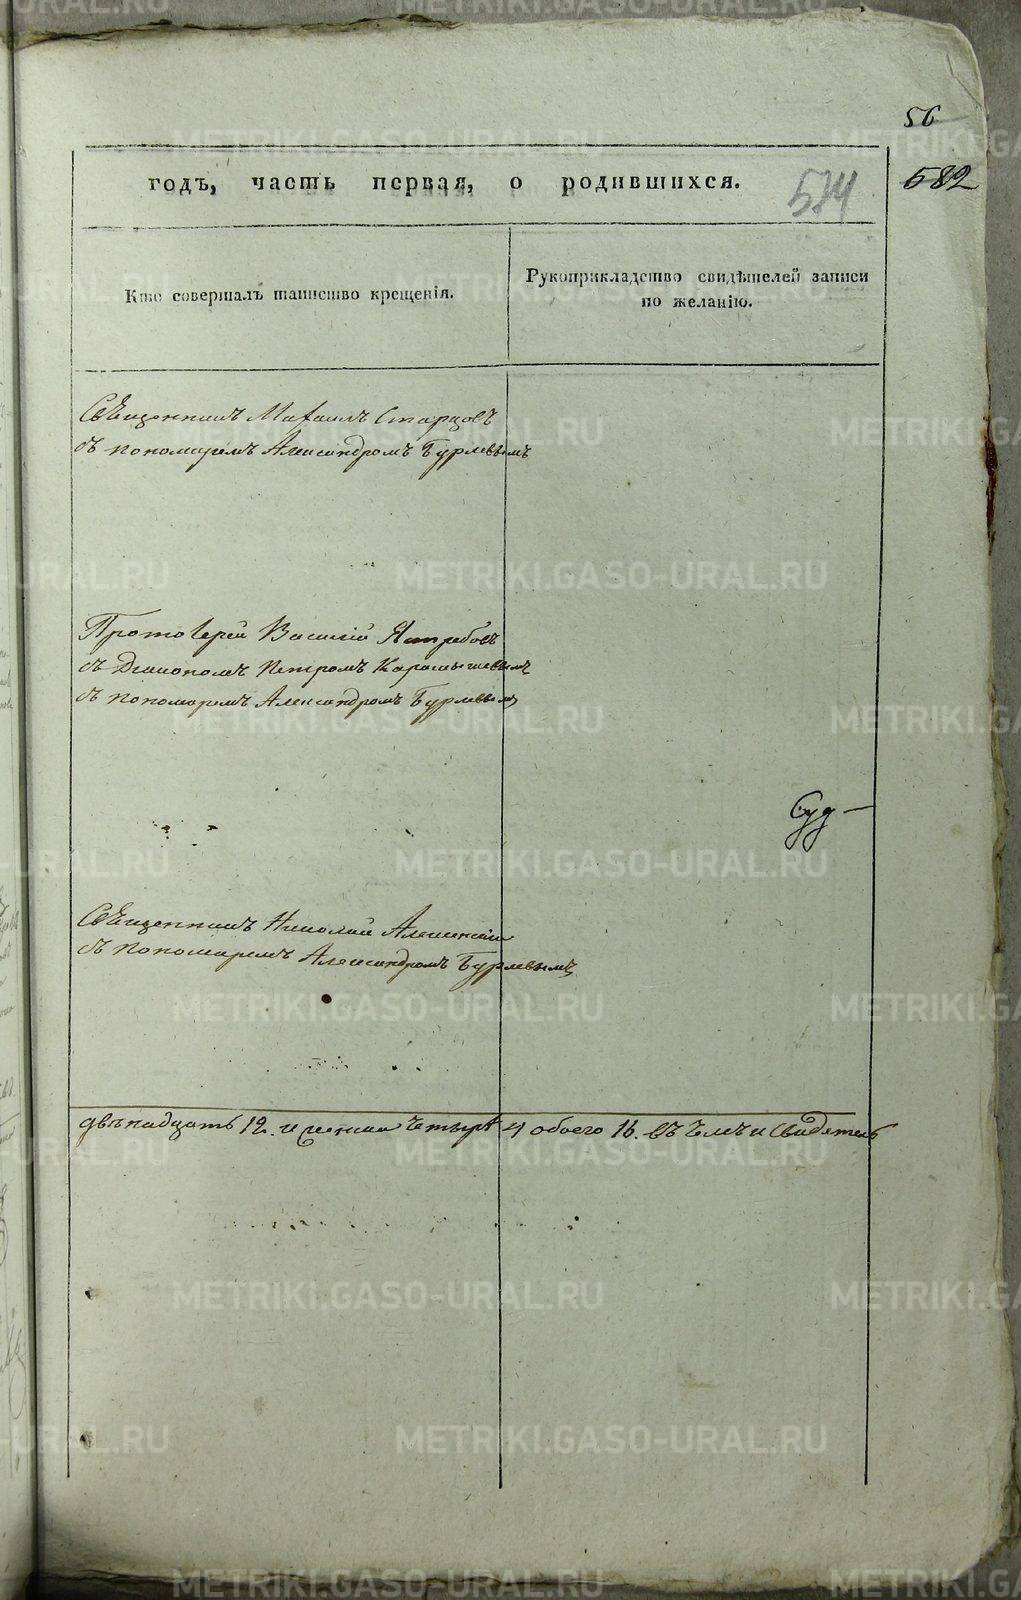 56
годъ, часть первая, о родившихся.
574
582
Кто совершалъ таинство крещенія.
Рукоприкладство свидѣтелей записи
по желанію.
Священникъ Михаилъ Старцовъ
съ пономаремъ Александромъ Бурлевымъ
Протоіерей Василій Ястребовъ
съ Діакономъ Петромъ Карамышевымъ
съ пономаремъ Александромъ Бурлевымъ
Суд —
Священникъ Николай
съ пономаремъ Александромъ Бурлевымъ
двѣнадцать 12. и женска четыре 4 обоего 16. въ чемъ и свидетель
METRIKI.GASO-URAL.RU